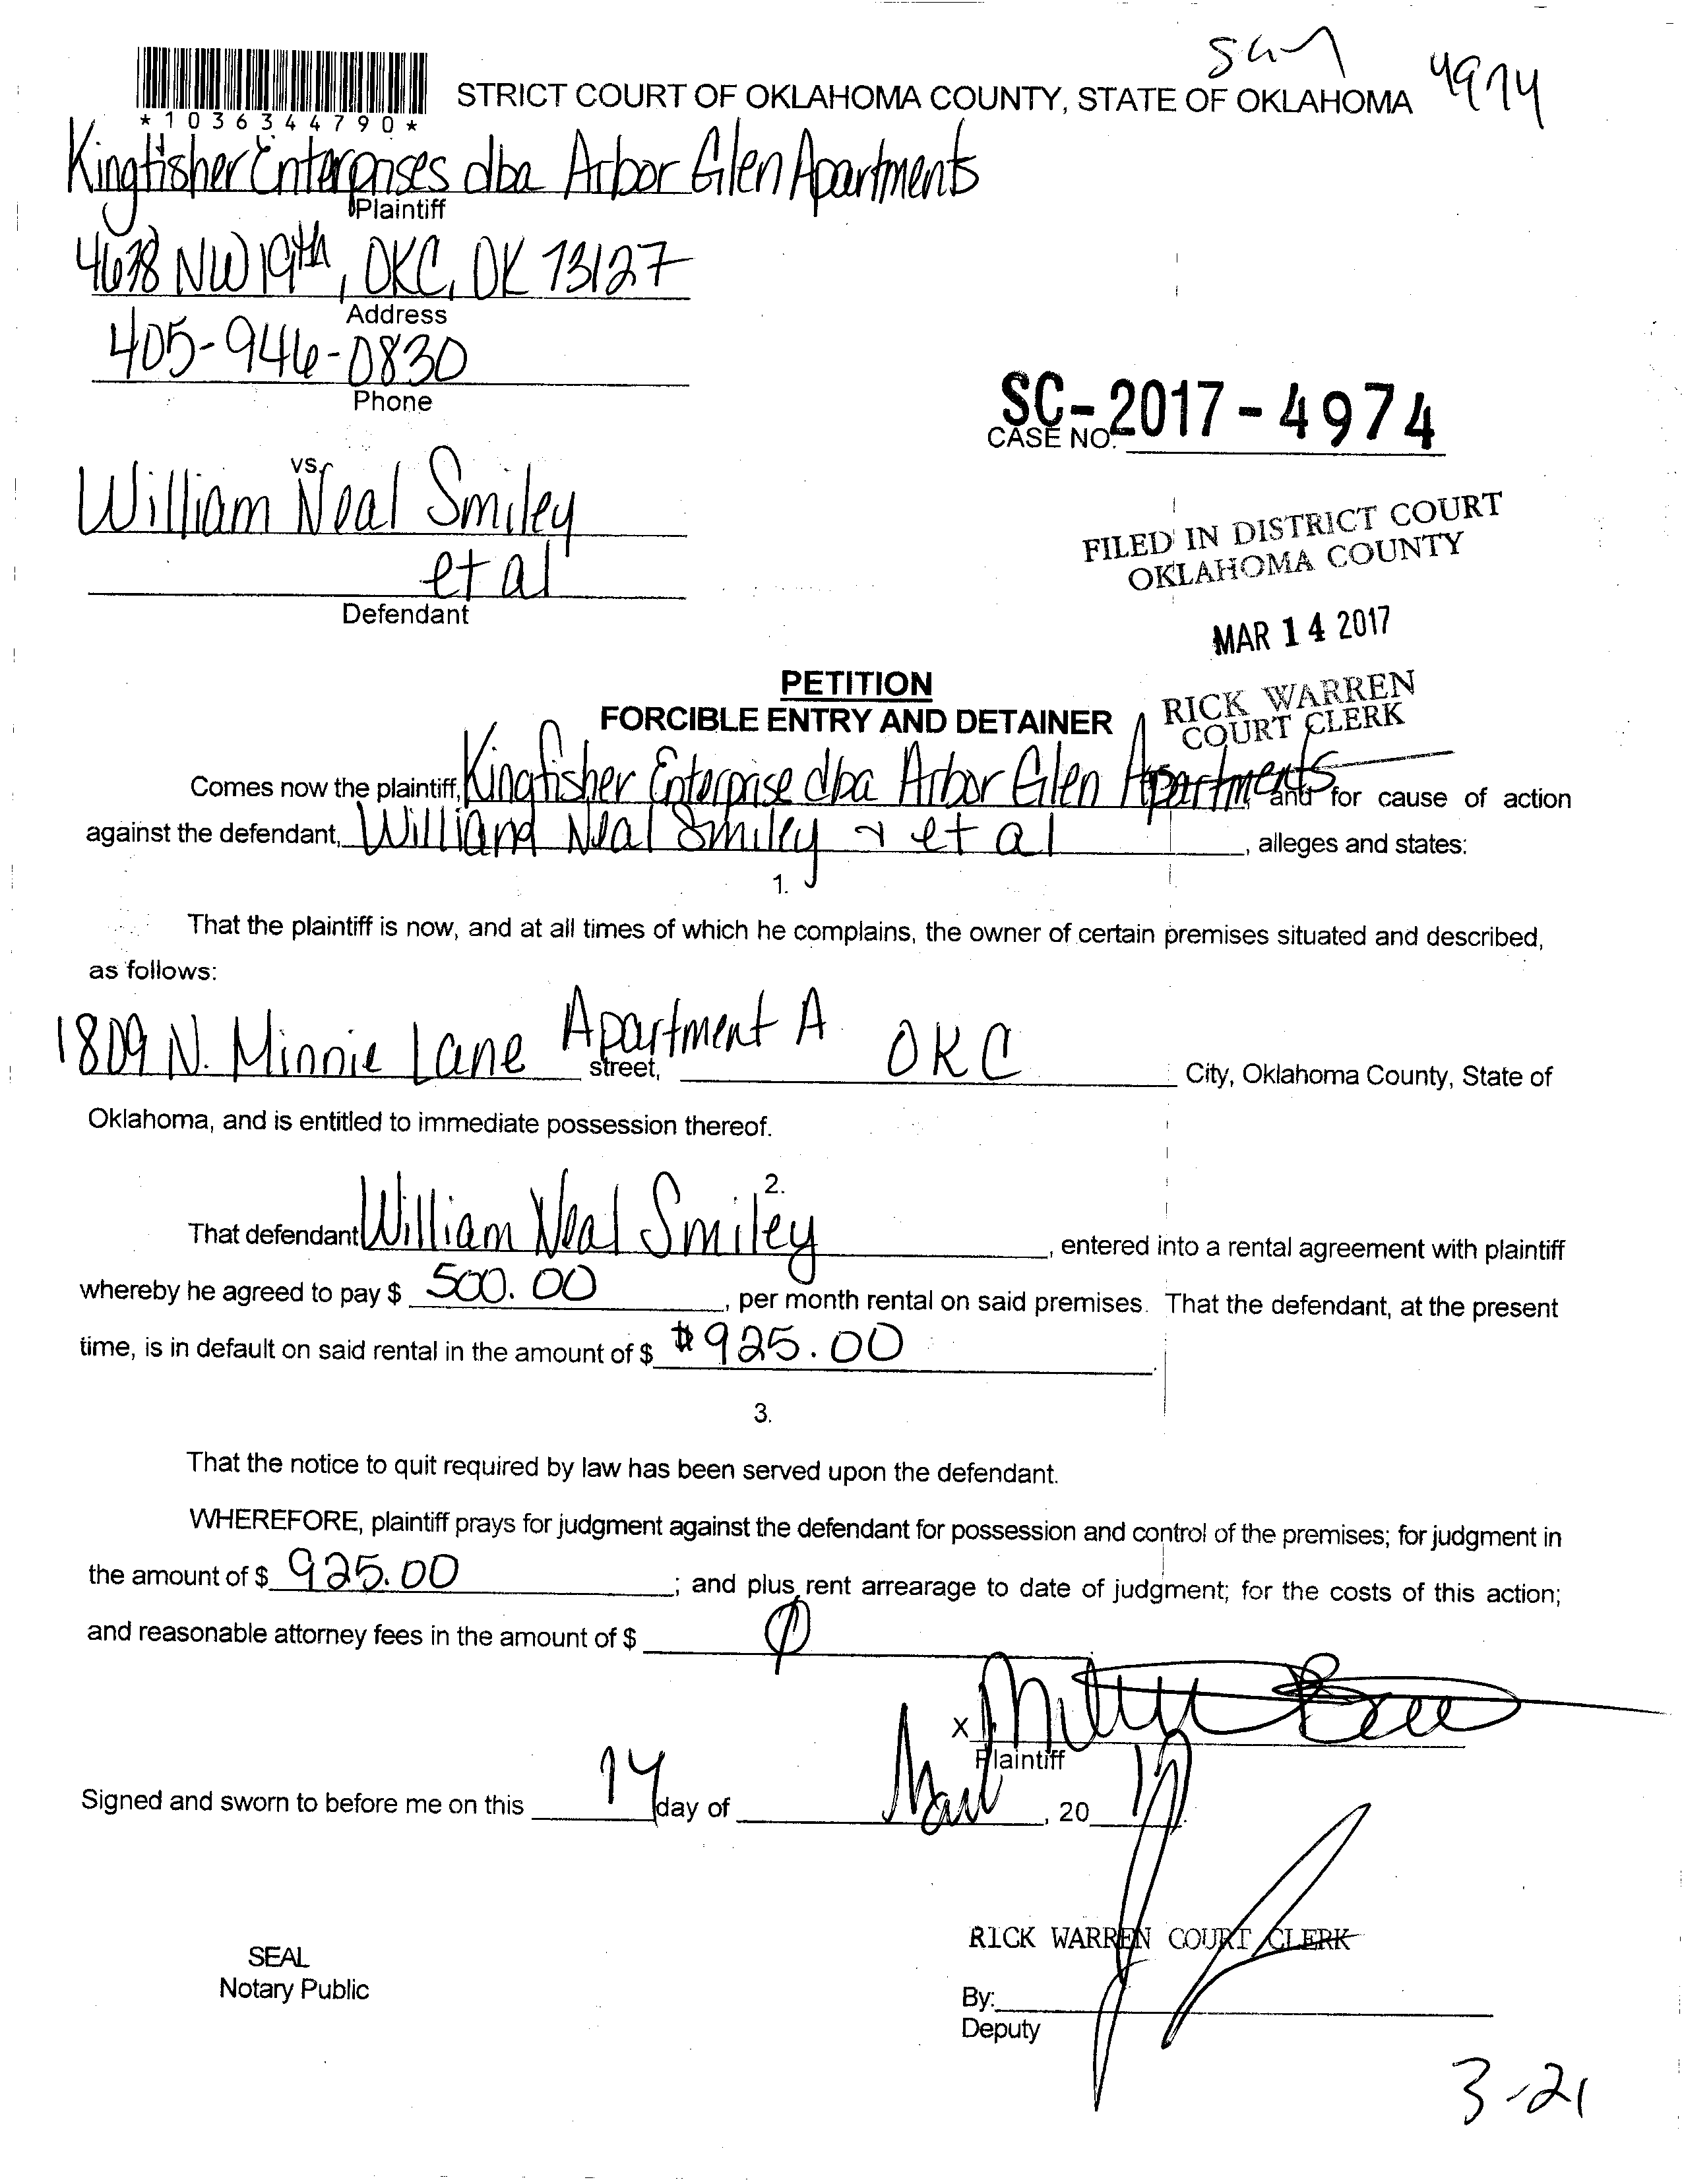 4974
STRICT COURT OF OKLAHOMA COUNTY, STATE OF OKLAHOMA
*1036344790*
Kingfisher Enterprises dba Arbor Glen Apartments
Plaintiff
4638 NW 19th, OKC, OK 73127
Address
405-946-0830
Phone
SC-2017-4974
CASE NO.
vs.
William Neal Smiley
et al
Defendant
FILED IN DISTRICT COURT
OKLAHOMA COUNTY
MAR 14 2017
RICK WARREN
COURT CLERK
PETITION
FORCIBLE ENTRY AND DETAINER
Comes now the plaintiff, Kingfisher Enterprise dba Arbor Glen Apartments and for cause of action
against the defendant, William Neal Smiley & et al, alleges and states:
1.
That the plaintiff is now, and at all times of which he complains, the owner of certain premises situated and described,
as follows:
1809 N. Minnie Lane Apartment A street, OKC City, Oklahoma County, State of
Oklahoma, and is entitled to immediate possession thereof.
2.
That defendant William Neal Smiley, entered into a rental agreement with plaintiff
whereby he agreed to pay $ 500.00, per month rental on said premises. That the defendant, at the present
time, is in default on said rental in the amount of $ $925.00.
3.
That the notice to quit required by law has been served upon the defendant.
WHEREFORE, plaintiff prays for judgment against the defendant for possession and control of the premises; for judgment in
the amount of $ 925.00; and plus rent arrearage to date of judgment; for the costs of this action;
and reasonable attorney fees in the amount of $ Ø
X
Plaintiff
Signed and sworn to before me on this 14 day of Mar, 20 17.
RICK WARREN COURT CLERK
SEAL
Notary Public
By:
Deputy
3-21